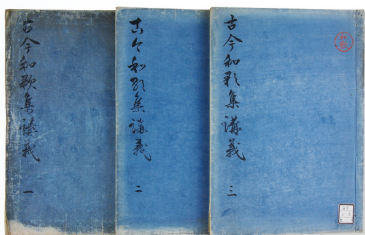 古今和歌集講義 一
古今和歌集講義 二
古今和歌集講義 三